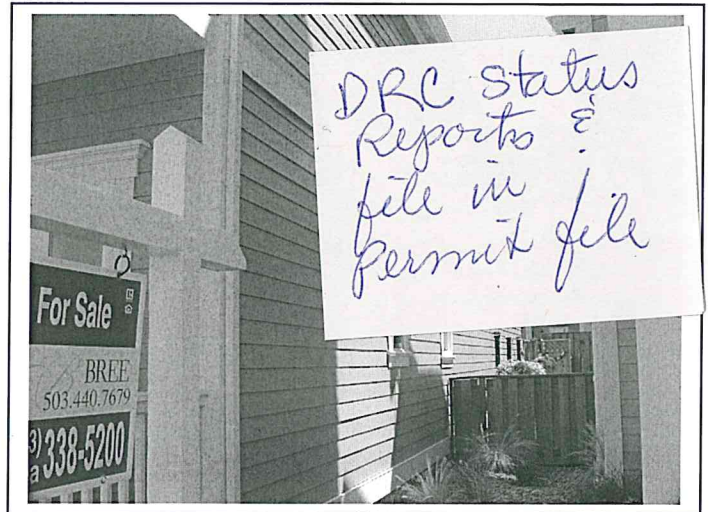 DRC Status
Reports &
file in
Permit file
For Sale
BREE
503.440.7679
3)
a 338-5200